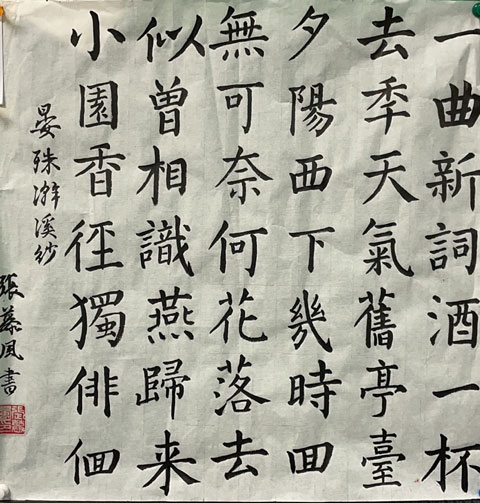 一曲新詞酒一杯
去季天氣舊亭臺
夕陽西下幾時囬
無可奈何花落去
似曾相識燕歸来
小園香徑獨俳佪
晏殊澣溪紗
張慕凤書